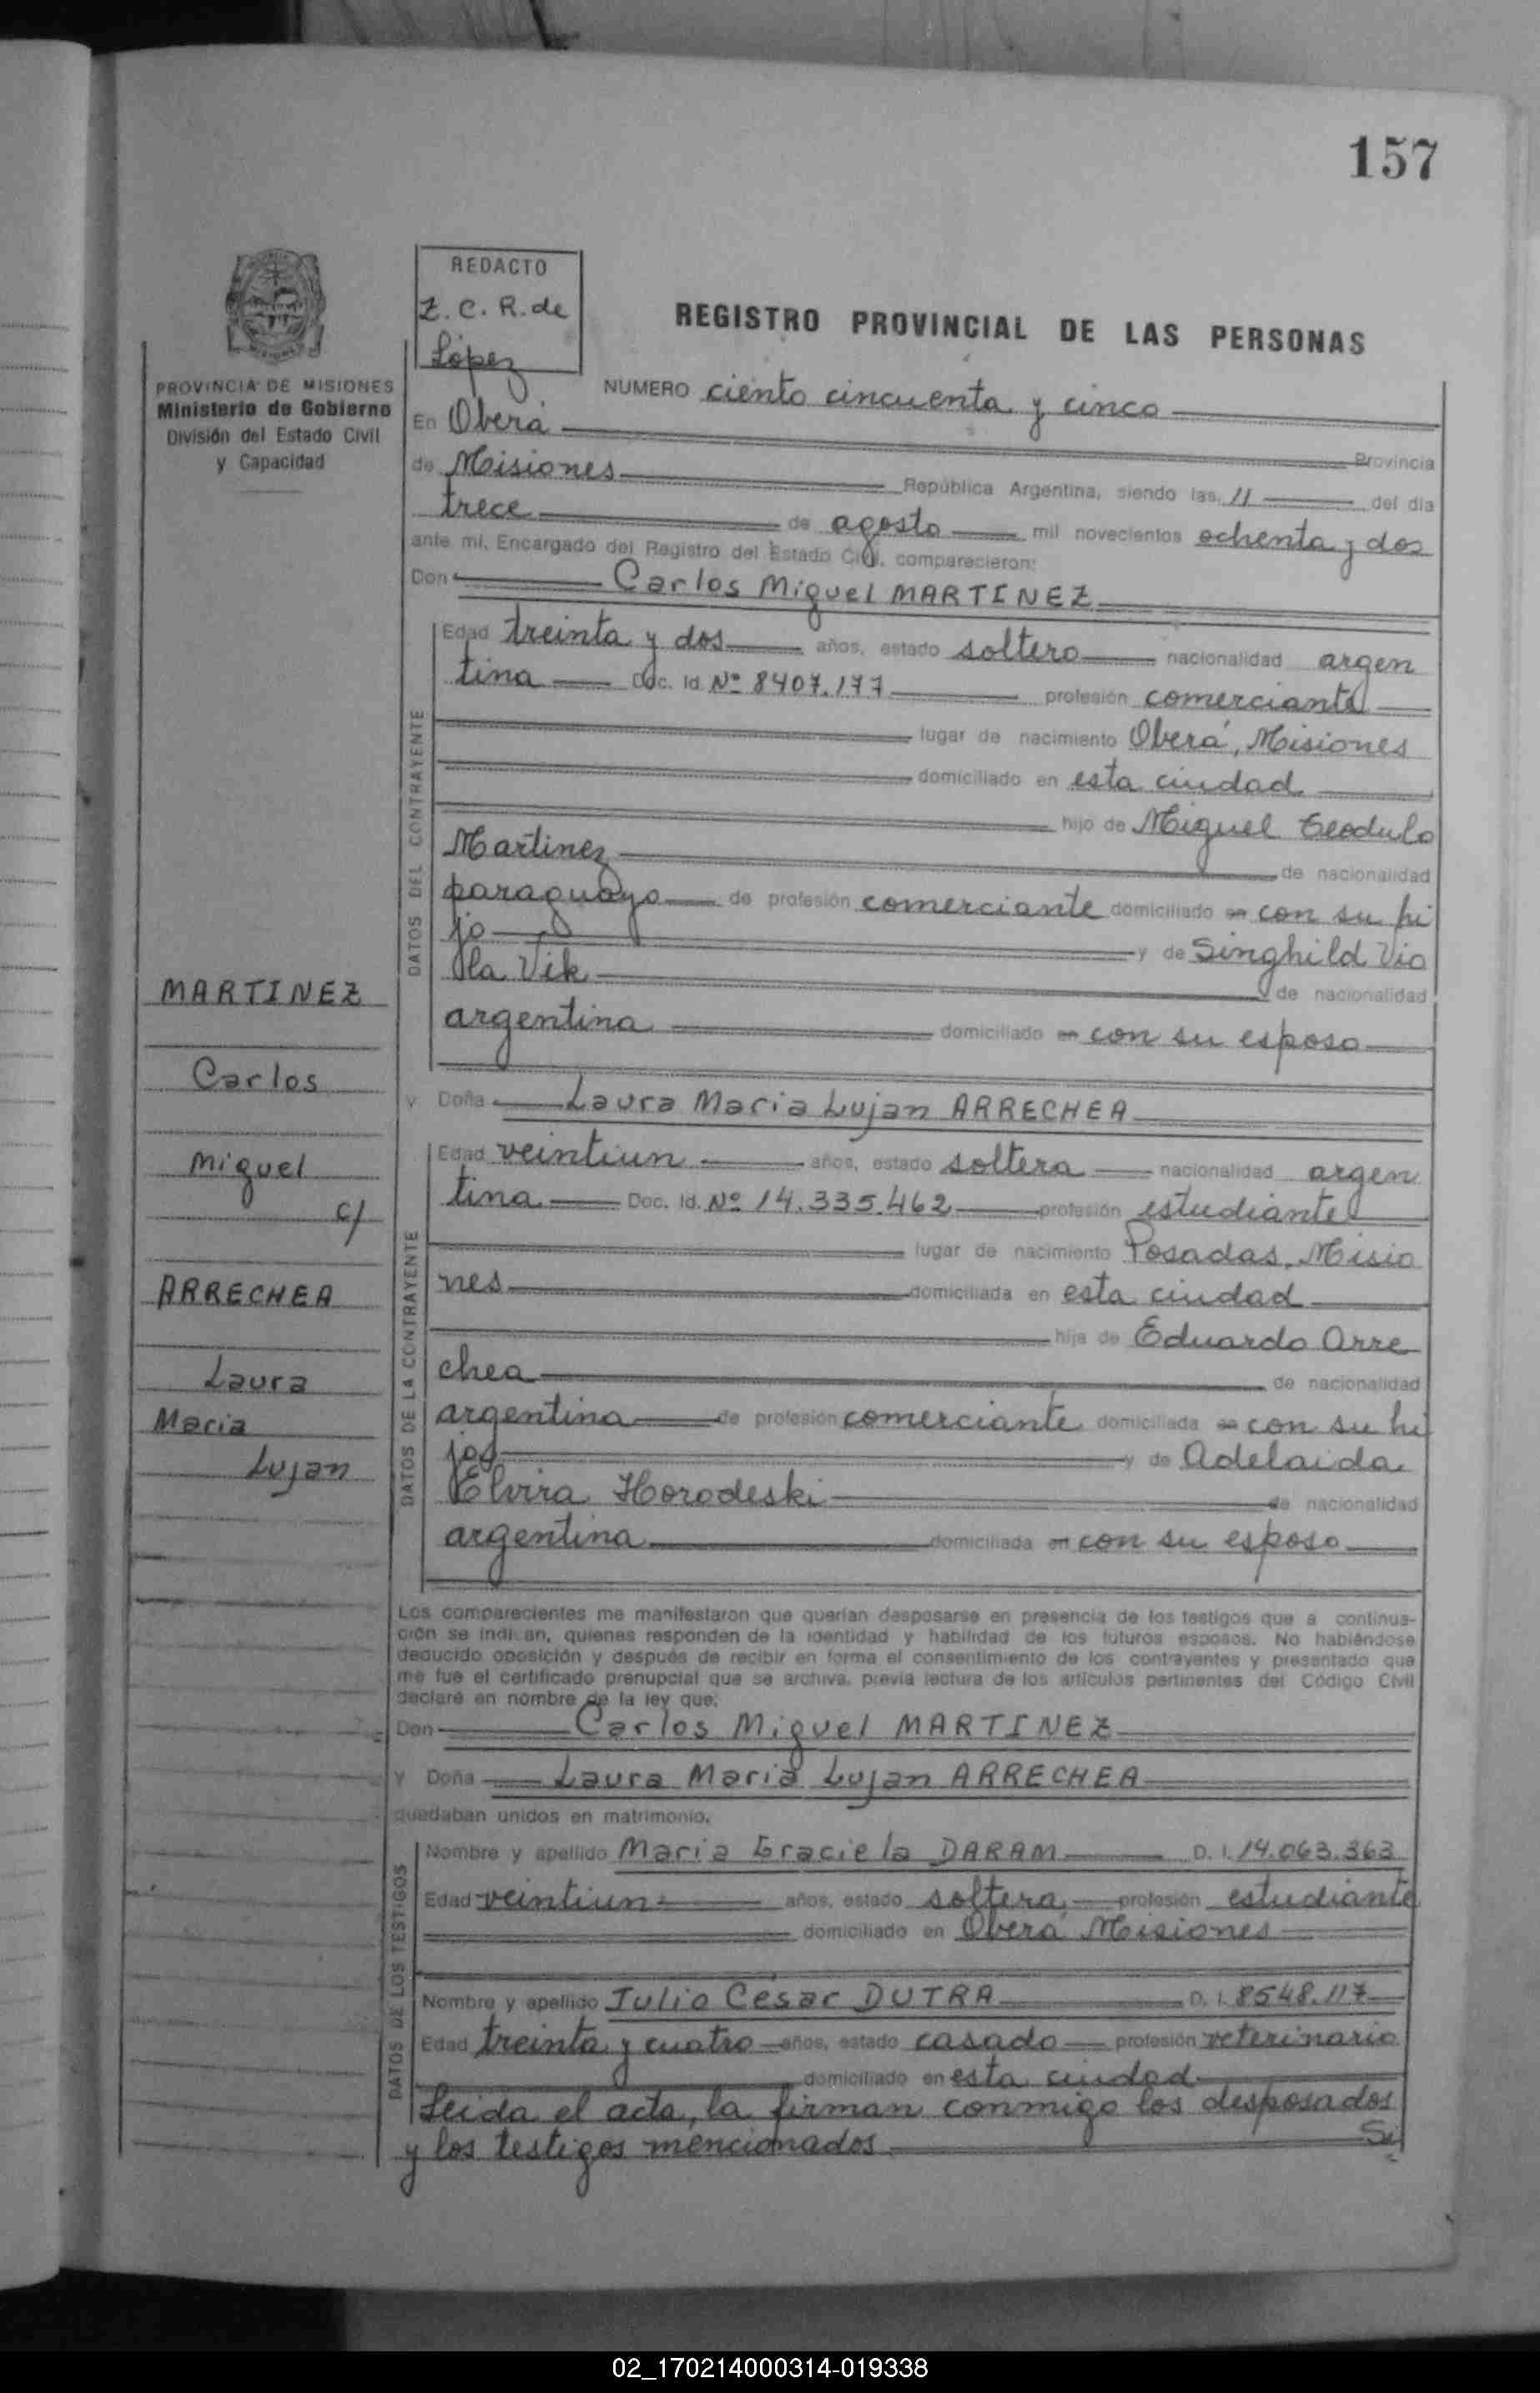 157
REDACTO
Z. C. R. de
López
REGISTRO PROVINCIAL DE LAS PERSONAS
PROVINCIA DE MISIONES
Ministerio de Gobierno
División del Estado Civil
y Capacidad
NUMERO ciento cincuenta y cinco
En Oberá
Provincia
de Misiones República Argentina, siendo las 11 del día
trece de agosto mil novecientos ochenta y dos
ante mí, Encargado del Registro del Estado Civil, comparecieron:
Don Carlos Miguel MARTINEZ
DATOS DEL CONTRAYENTE
Edad treinta y dos años, estado soltero nacionalidad argen
tina Doc. Id. Nº 8407.177 profesión comerciante
lugar de nacimiento Oberá, Misiones
domiciliado en esta ciudad
hijo de Miguel Teodulo
Martinez de nacionalidad
paraguayo de profesión comerciante domiciliado en con su hi
jo y de Singhild Vio
la Vik de nacionalidad
argentina domiciliado en con su esposo
y Doña Laura Maria Lujan ARRECHEA
DATOS DE LA CONTRAYENTE
Edad veintiun años, estado soltera nacionalidad argen
tina Doc. Id. Nº 14.335.462 profesión estudiante
lugar de nacimiento Posadas, Misio
nes domiciliada en esta ciudad
hija de Eduardo Arre
chea de nacionalidad
argentina de profesión comerciante domiciliada en con su hi
ja y de Adelaida
Elvira Horodeski de nacionalidad
argentina domiciliada en con su esposo
MARTINEZ
Carlos
Miguel
c/
ARRECHEA
Laura
Maria
Lujan
Los comparecientes me manifestaron que querían desposarse en presencia de los testigos que a continua-
ción se indican, quienes responden de la identidad y habilidad de los futuros esposos. No habiéndose
deducido oposición y después de recibir en forma el consentimiento de los contrayentes y presentado que
me fue el certificado prenupcial que se archiva, previa lectura de los artículos pertinentes del Código Civil
declaré en nombre de la ley que:
Don Carlos Miguel MARTINEZ
y Doña Laura Maria Lujan ARRECHEA
quedaban unidos en matrimonio.
DATOS DE LOS TESTIGOS
Nombre y apellido Maria Graciela DARAM D. I. 14.063.363
Edad veintiun años, estado soltera profesión estudiante
domiciliado en Oberá Misiones
Nombre y apellido Julio César DUTRA D. I. 8548.117
Edad treinta y cuatro años, estado casado profesión veterinario
domiciliado en esta ciudad
Leida el acta, la firman conmigo los desposados
y los testigos mencionados
02_170214000314-019338